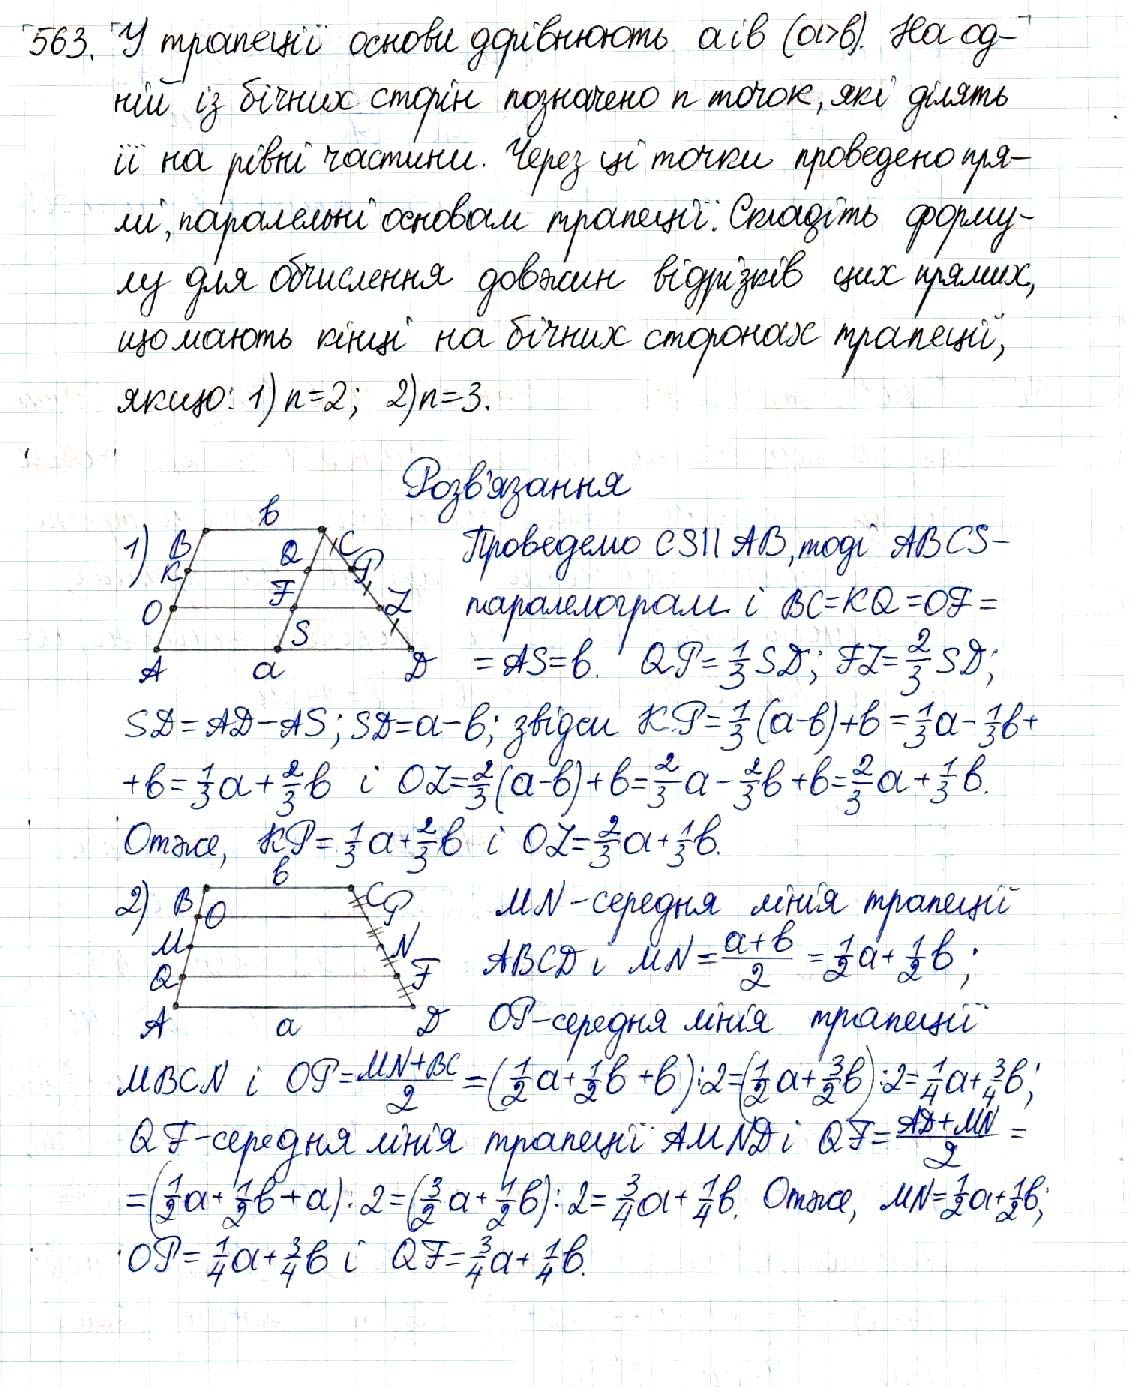 563. У трапеції основи дорівнюють a і b (a>b). На од-
ній із бічних сторін позначено n точок, які ділять
її на рівні частини. Через ці точки проведено пря-
мі, паралельні основам трапеції. Складіть форму-
лу для обчислення довжин відрізків цих прямих,
що мають кінці на бічних сторонах трапеції,
якщо: 1) n=2; 2) n=3.
Розв'язання
1) B b C K Q P O F Z A a S D
Проведемо CS||AB, тоді ABCS-
паралелограм і BC=KQ=OF=
=AS=b. QP=1/3 SD; FZ=2/3 SD;
SD=AD-AS; SD=a-b; звідси KP=1/3(a-b)+b=1/3a-1/3b+
+b=1/3a+2/3b і OZ=2/3(a-b)+b=2/3a-2/3b+b=2/3a+1/3b.
Отже, KP=1/3a+2/3b і OZ=2/3a+1/3b.
2) B b C O P M N Q F A a D
MN-середня лінія трапеції
ABCD і MN=(a+b)/2=1/2a+1/2b;
OP-середня лінія трапеції
MBCN і OP=(MN+BC)/2=(1/2a+1/2b+b):2=(1/2a+3/2b):2=1/4a+3/4b;
QF-середня лінія трапеції AMND і QF=(AD+MN)/2=
=(1/2a+1/2b+a):2=(3/2a+1/2b):2=3/4a+1/4b. Отже, MN=1/2a+1/2b;
OP=1/4a+3/4b і QF=3/4a+1/4b.